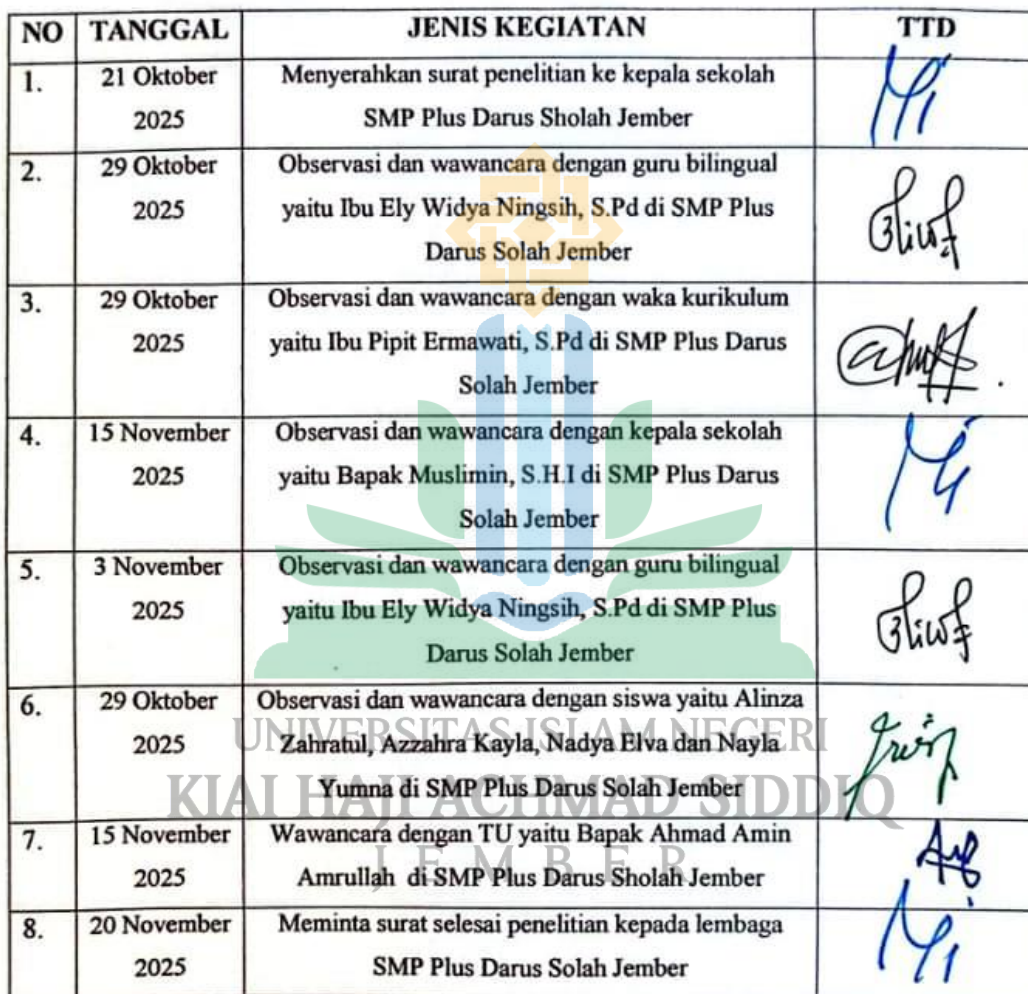 NO TANGGAL JENIS KEGIATAN TTD
1. 21 Oktober Menyerahkan surat penelitian ke kepala sekolah
2025 SMP Plus Darus Sholah Jember
2. 29 Oktober Observasi dan wawancara dengan guru bilingual
2025 yaitu Ibu Ely Widya Ningsih, S.Pd di SMP Plus
Darus Solah Jember
3. 29 Oktober Observasi dan wawancara dengan waka kurikulum
2025 yaitu Ibu Pipit Ermawati, S.Pd di SMP Plus Darus
Solah Jember
4. 15 November Observasi dan wawancara dengan kepala sekolah
2025 yaitu Bapak Muslimin, S.H.I di SMP Plus Darus
Solah Jember
5. 3 November Observasi dan wawancara dengan guru bilingual
2025 yaitu Ibu Ely Widya Ningsih, S.Pd di SMP Plus
Darus Solah Jember
6. 29 Oktober Observasi dan wawancara dengan siswa yaitu Alinza
2025 Zahratul, Azzahra Kayla, Nadya Elva dan Nayla
Yumna di SMP Plus Darus Solah Jember
7. 15 November Wawancara dengan TU yaitu Bapak Ahmad Amin
2025 Amrullah di SMP Plus Darus Sholah Jember
8. 20 November Meminta surat selesai penelitian kepada lembaga
2025 SMP Plus Darus Solah Jember
UNIVERSITAS ISLAM NEGERI
KIAI HAJI ACHMAD SIDDIQ
JEMBER